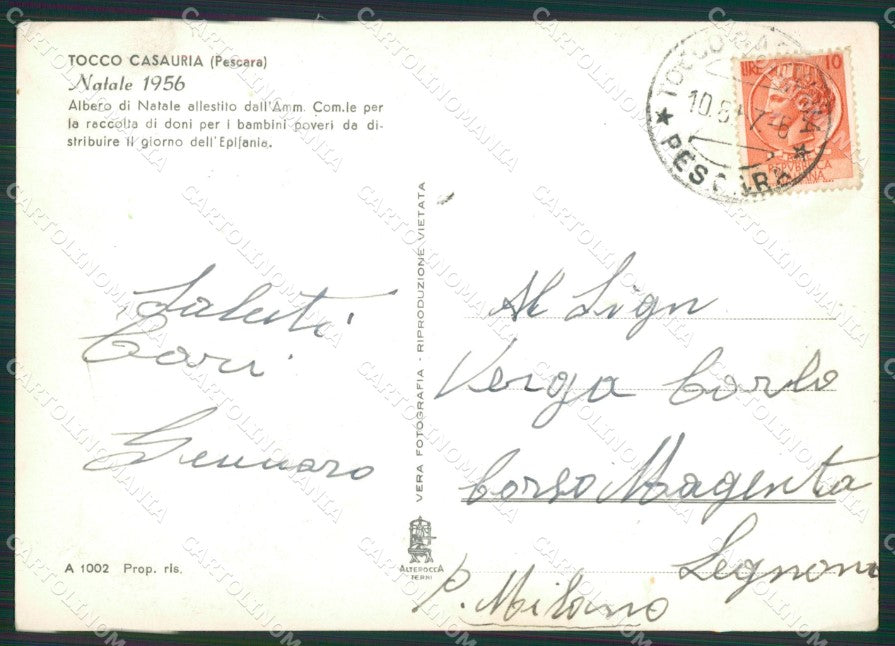 TOCCO CASAURIA (Pescara)
Natale 1956
Albero di Natale allestito dall'Amm. Com.le per
la raccolta di doni per i bambini poveri da di-
stribuire il giorno dell'Epifania.
LIRE 10
REPUBBLICA
TOCCO
PESCARA
Saluti
Cari
Gennaro
VERA FOTOGRAFIA - RIPRODUZIONE VIETATA
Al Sign
Verga Carlo
Corso Magenta
Legnano
P. Milano
A 1002 Prop. ris.
ALTEROCCA
TERNI
CARTOLINOMANIA